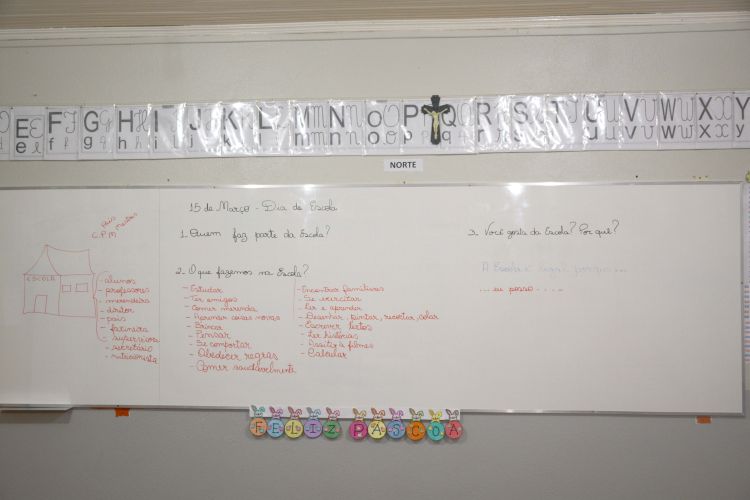 E F G H I J K L M N O P Q R S T U V W X Y
e f g h i j k l m n o p q r s t u v w x y
NORTE
15 de Março - Dia da Escola
1. Quem faz parte da Escola?
3. Você gosta da Escola? Por quê?
Pais
mestres
C.P.M
ESCOLA
- alunos
- professores
- merendeira
- diretor
- pais
- faxineira
- supervisora
- secretário
- nutricionista
2. O que fazemos na Escola?
- Estudar
- Ter amigos
- Comer merenda
- Aprender coisas novas
- Brincar
- Pensar
- Se comportar
- Obedecer regras
- Comer saudavelmente
- Encontrar familiares
- Se exercitar
- Ler e aprender
- Desenhar, pintar, recortar, colar
- Escrever textos
- Ler histórias
- Assistir a filmes
- Calcular
A Escola é legal porque...
... eu posso ....
FELIZ PÁSCOA